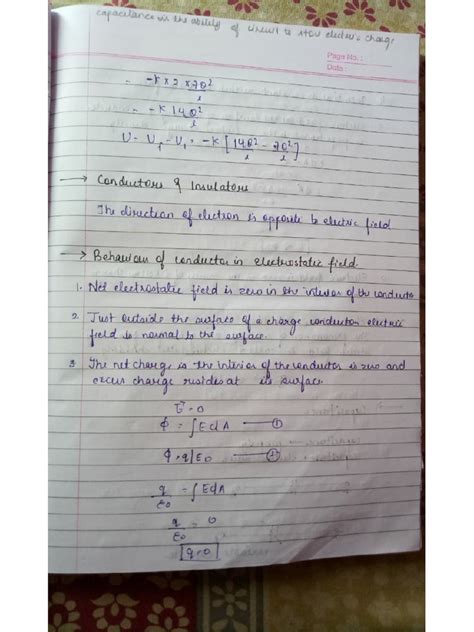 capacitance is the ability of circuit to store electric charge
Page No. :
Date :
= -K x 2 x 7Q²/l
= -K 14Q²/l
U = Uf - Ui = -K [14Q²/l - 7Q²/l]
→ Conductors & Insulators
The direction of electron is opposite to electric field
→ Behaviour of conductor in electrostatic field.
1. Net electrostatic field is zero in the interior of the conductor
2. Just outside the surface of a charge conductor electric
field is normal to the surface.
3 The net charge is the interior of the conductor is zero and
excess charge resides at its surface.
E⃗ = 0
ϕ = ∫EdA — ①
ϕ = q/E0 — ②
q/ε0 = ∫EdA
q/ε0 = 0
q=0